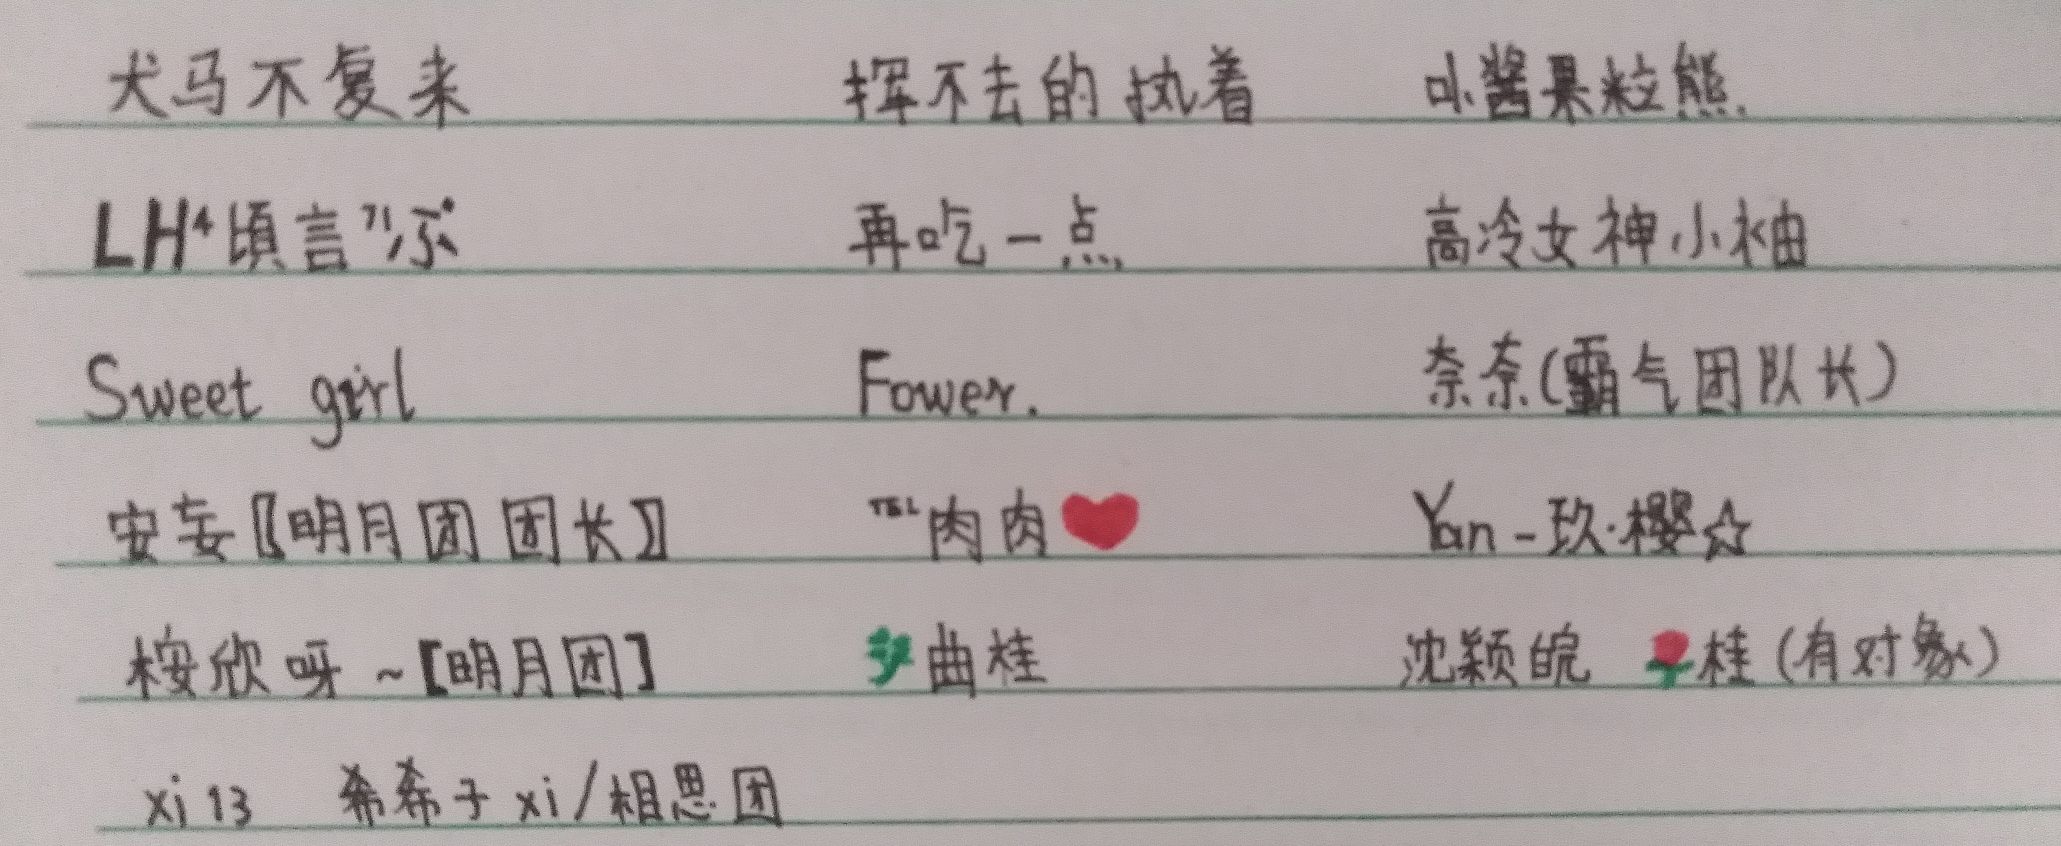 犬马不复来 挥不去的执着 小酱果粒熊.
LH⁴頃言 再吃一点 高冷女神小柚
Sweet girl Fower. 奈奈(霸气团队长)
安妄〖明月团团长〗 ᵀᴱᴸ肉肉❤ Yan-玖·樱☆
桉欣呀~【明月团】 曲桂 沈颖皖 🌹桂(有对象)
xi 13 希希子xi/相思团